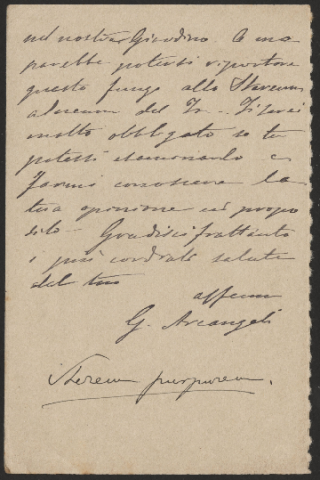 nel nostro Giardino. A me
parebbe potersi riportare
questo fungo allo Stereum
del Fr. Ti sarei
molto obbligato se tu
potessi esaminarlo e
farmi conoscere la
tua opinione in propo
sito. Gradisci frattanto
i più cordiali saluti
del tuo
affmo
G. Arcangeli
Stereum purpureum.